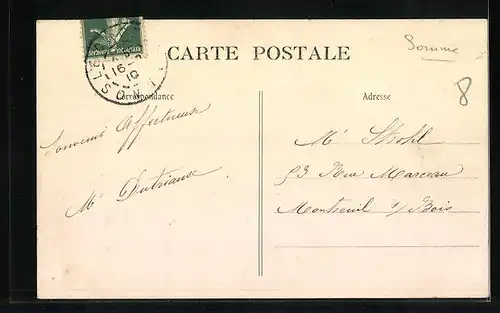 CARTE POSTALE
Somme
8
Correspondance
Adresse
Souvenir Affectueux
Mr Strohl
53 Rue Marceau
Mr Dutriaux
Montreuil s/ Bois